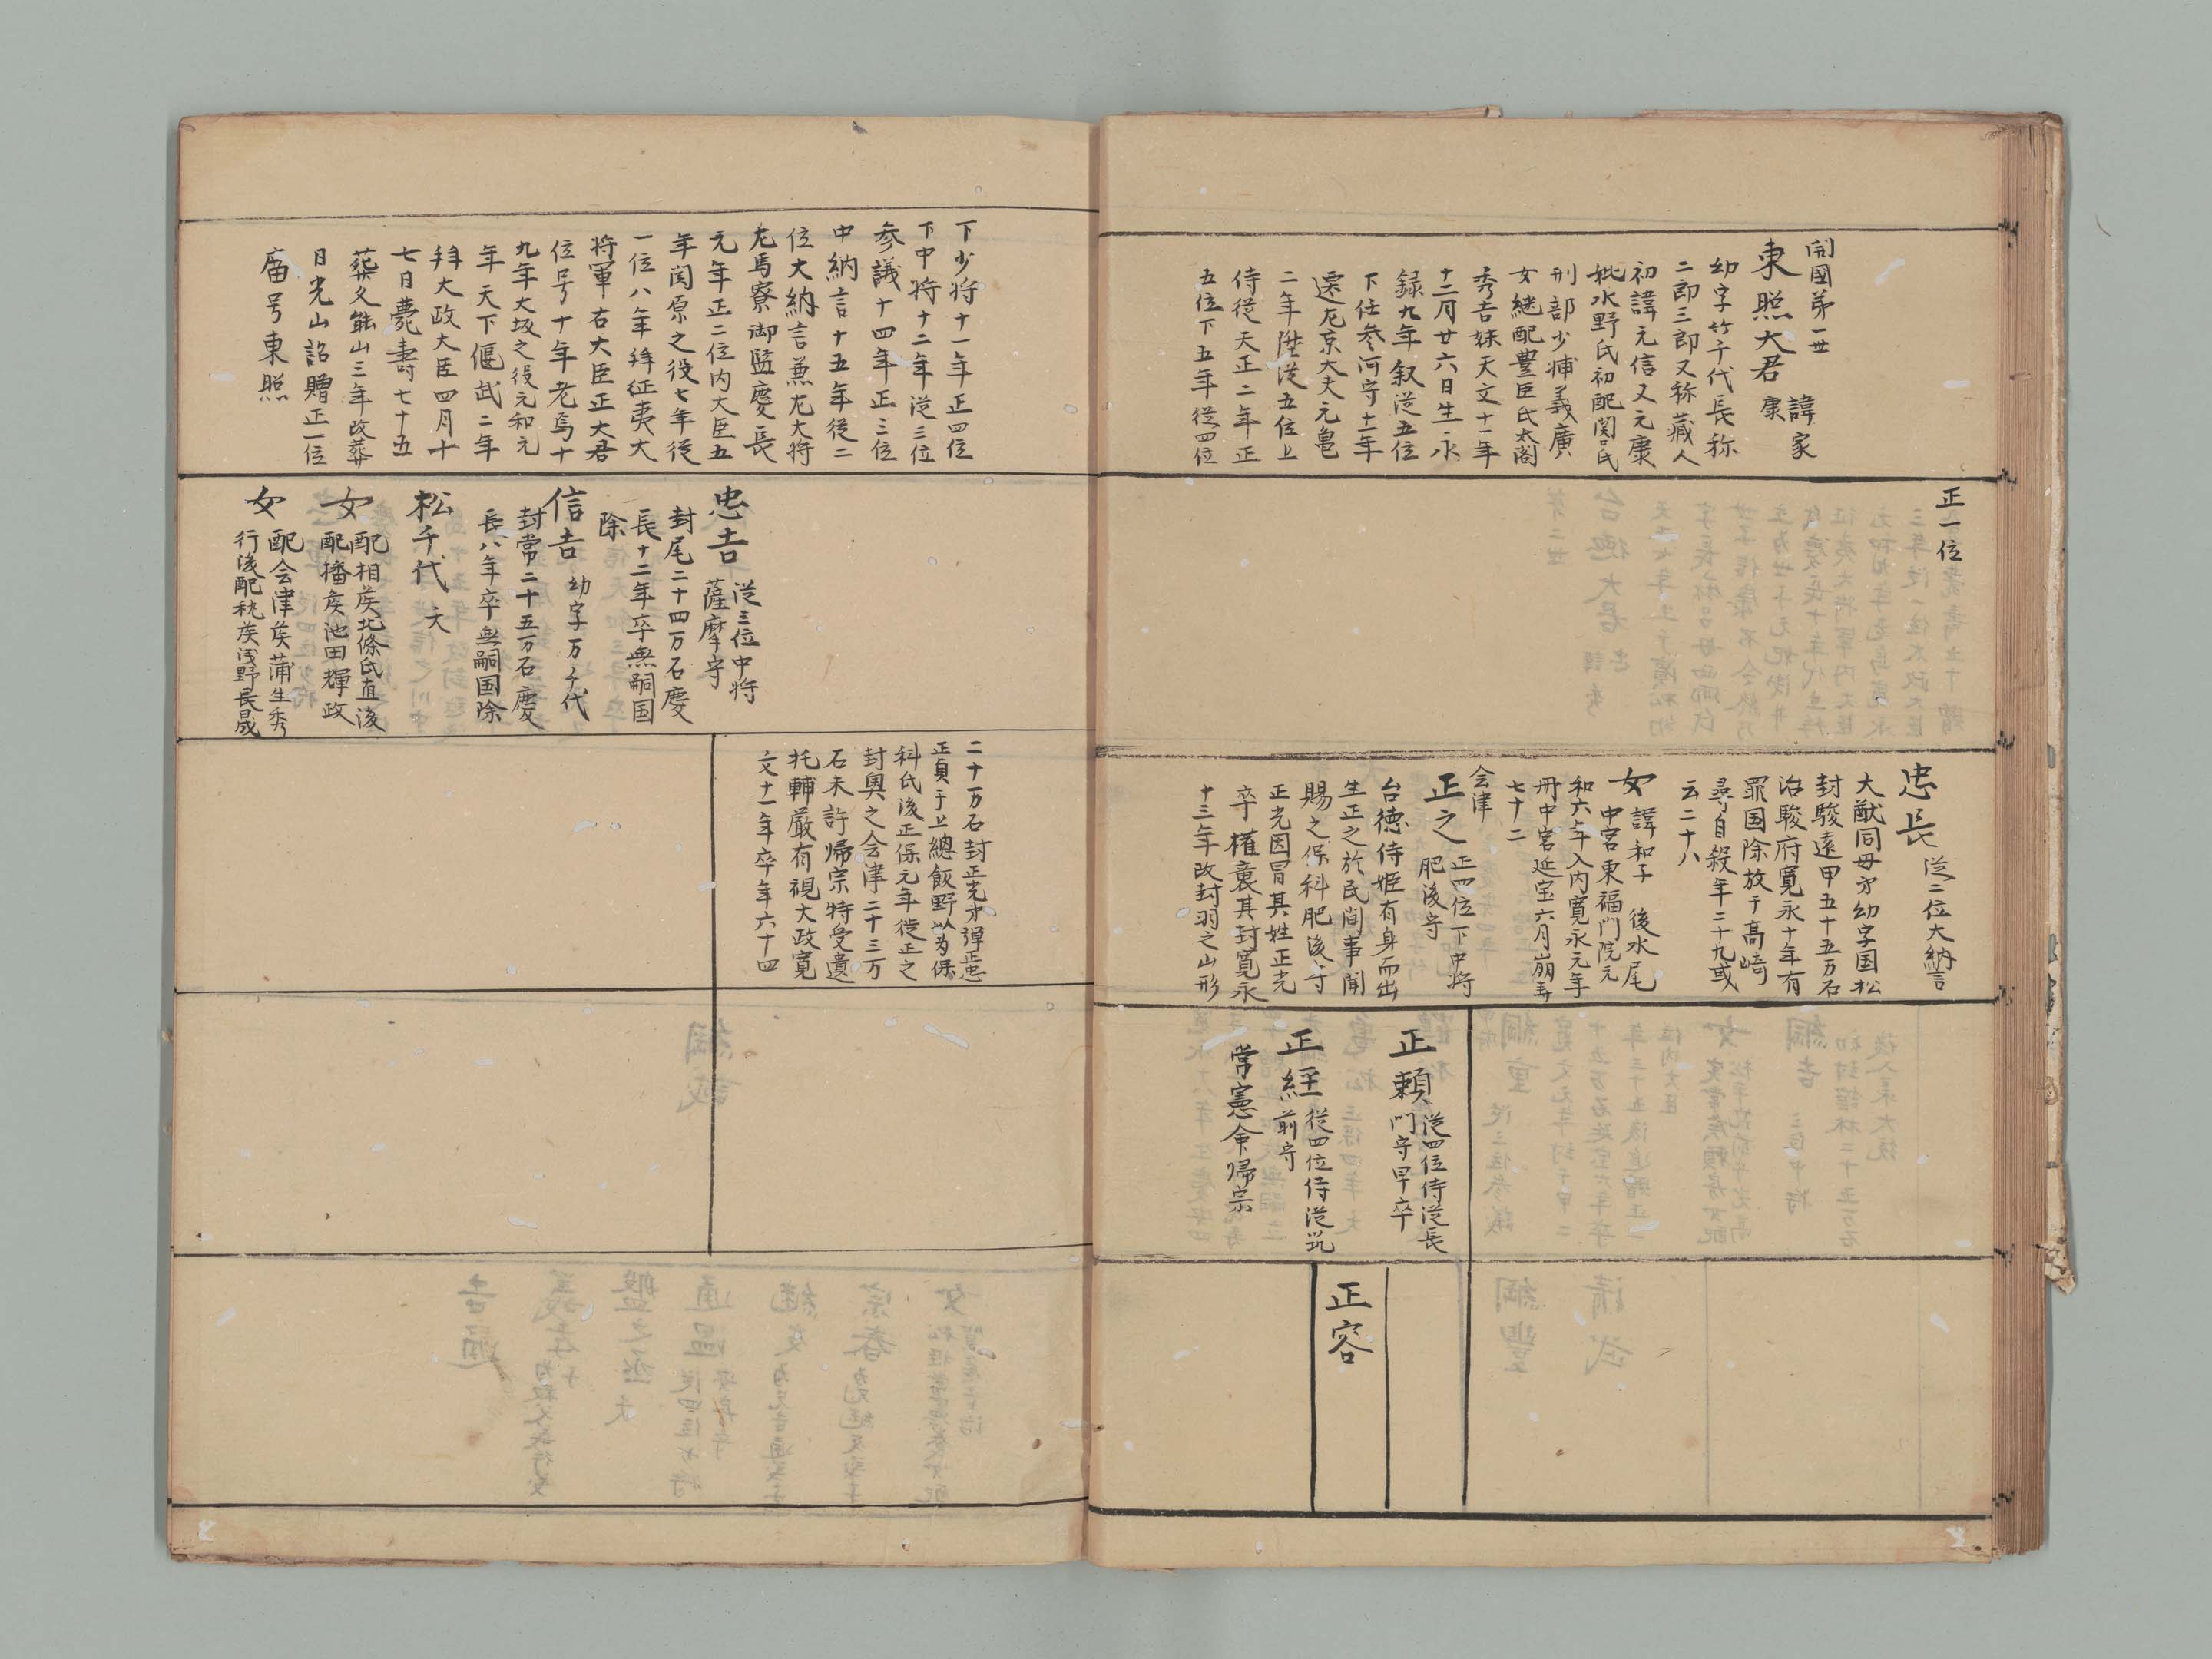 開國第一世
東照大君 諱家
康
幼字竹千代長称
二郎三郎又称蔵人
初諱元信又元康
妣水野氏初配関口氏
刑部少輔義廣
女継配豊臣氏太閤
秀吉妹天文十一年
十二月廿六日生永
録九年叙従五位
下任参河守十一年
遷左京大夫元亀
二年陞従五位上
侍従天正二年正
五位下五年従四位
正一位
忠長 従二位大納言
大猷同母弟幼字国松
封駿遠甲五十五万石
治駿府寛永十年有
罪国除放于高崎
尋自殺年二十九或
云二十八
女 諱和子 後水尾
中宮東福門院元
和六年入内寛永元年
冊中宮延宝六月崩寿
七十二
会津
正之 正四位下中将
肥後守
台徳侍姫有身而出
生正之於民間事聞
賜之保科肥後守
正光因冒其姓正光
卒 襲其封寛永
十三年改封羽之山形
正頼 従四位侍従長
門守早卒
正経 従四位侍従筑
前守
常憲命帰宗
正容
下少将十一年正四位
下中将十二年従三位
参議十四年正三位
中納言十五年従二
位大納言兼左大将
左馬寮御監慶長
元年正二位内大臣五
年関原之役七年従
一位八年拝征夷大
将軍右大臣正大君
位号十年老焉十
九年大坂之役元和元
年天下偃武二年
拝大政大臣四月十
七日薨壽七十五
葬久能山三年改葬
日光山詔贈正一位
庿号東照
忠吉 従三位中将
薩摩守
封尾二十四万石慶
長十二年卒無嗣国
除
信吉 幼字万千代
封常二十五万石慶
長八年卒無嗣国除
松千代 夭
女 配相侯北條氏直後
配播侯池田輝政
女 配会津侯蒲生秀
行後配秋侯浅野長晟
二十万石封正光弟弾正忠
正貞于上總飯野以為保
科氏後正保元年徙正之
封奥之会津二十三万
石未許帰宗特受遺
托輔厳有視大政寛
文十一年卒年六十四